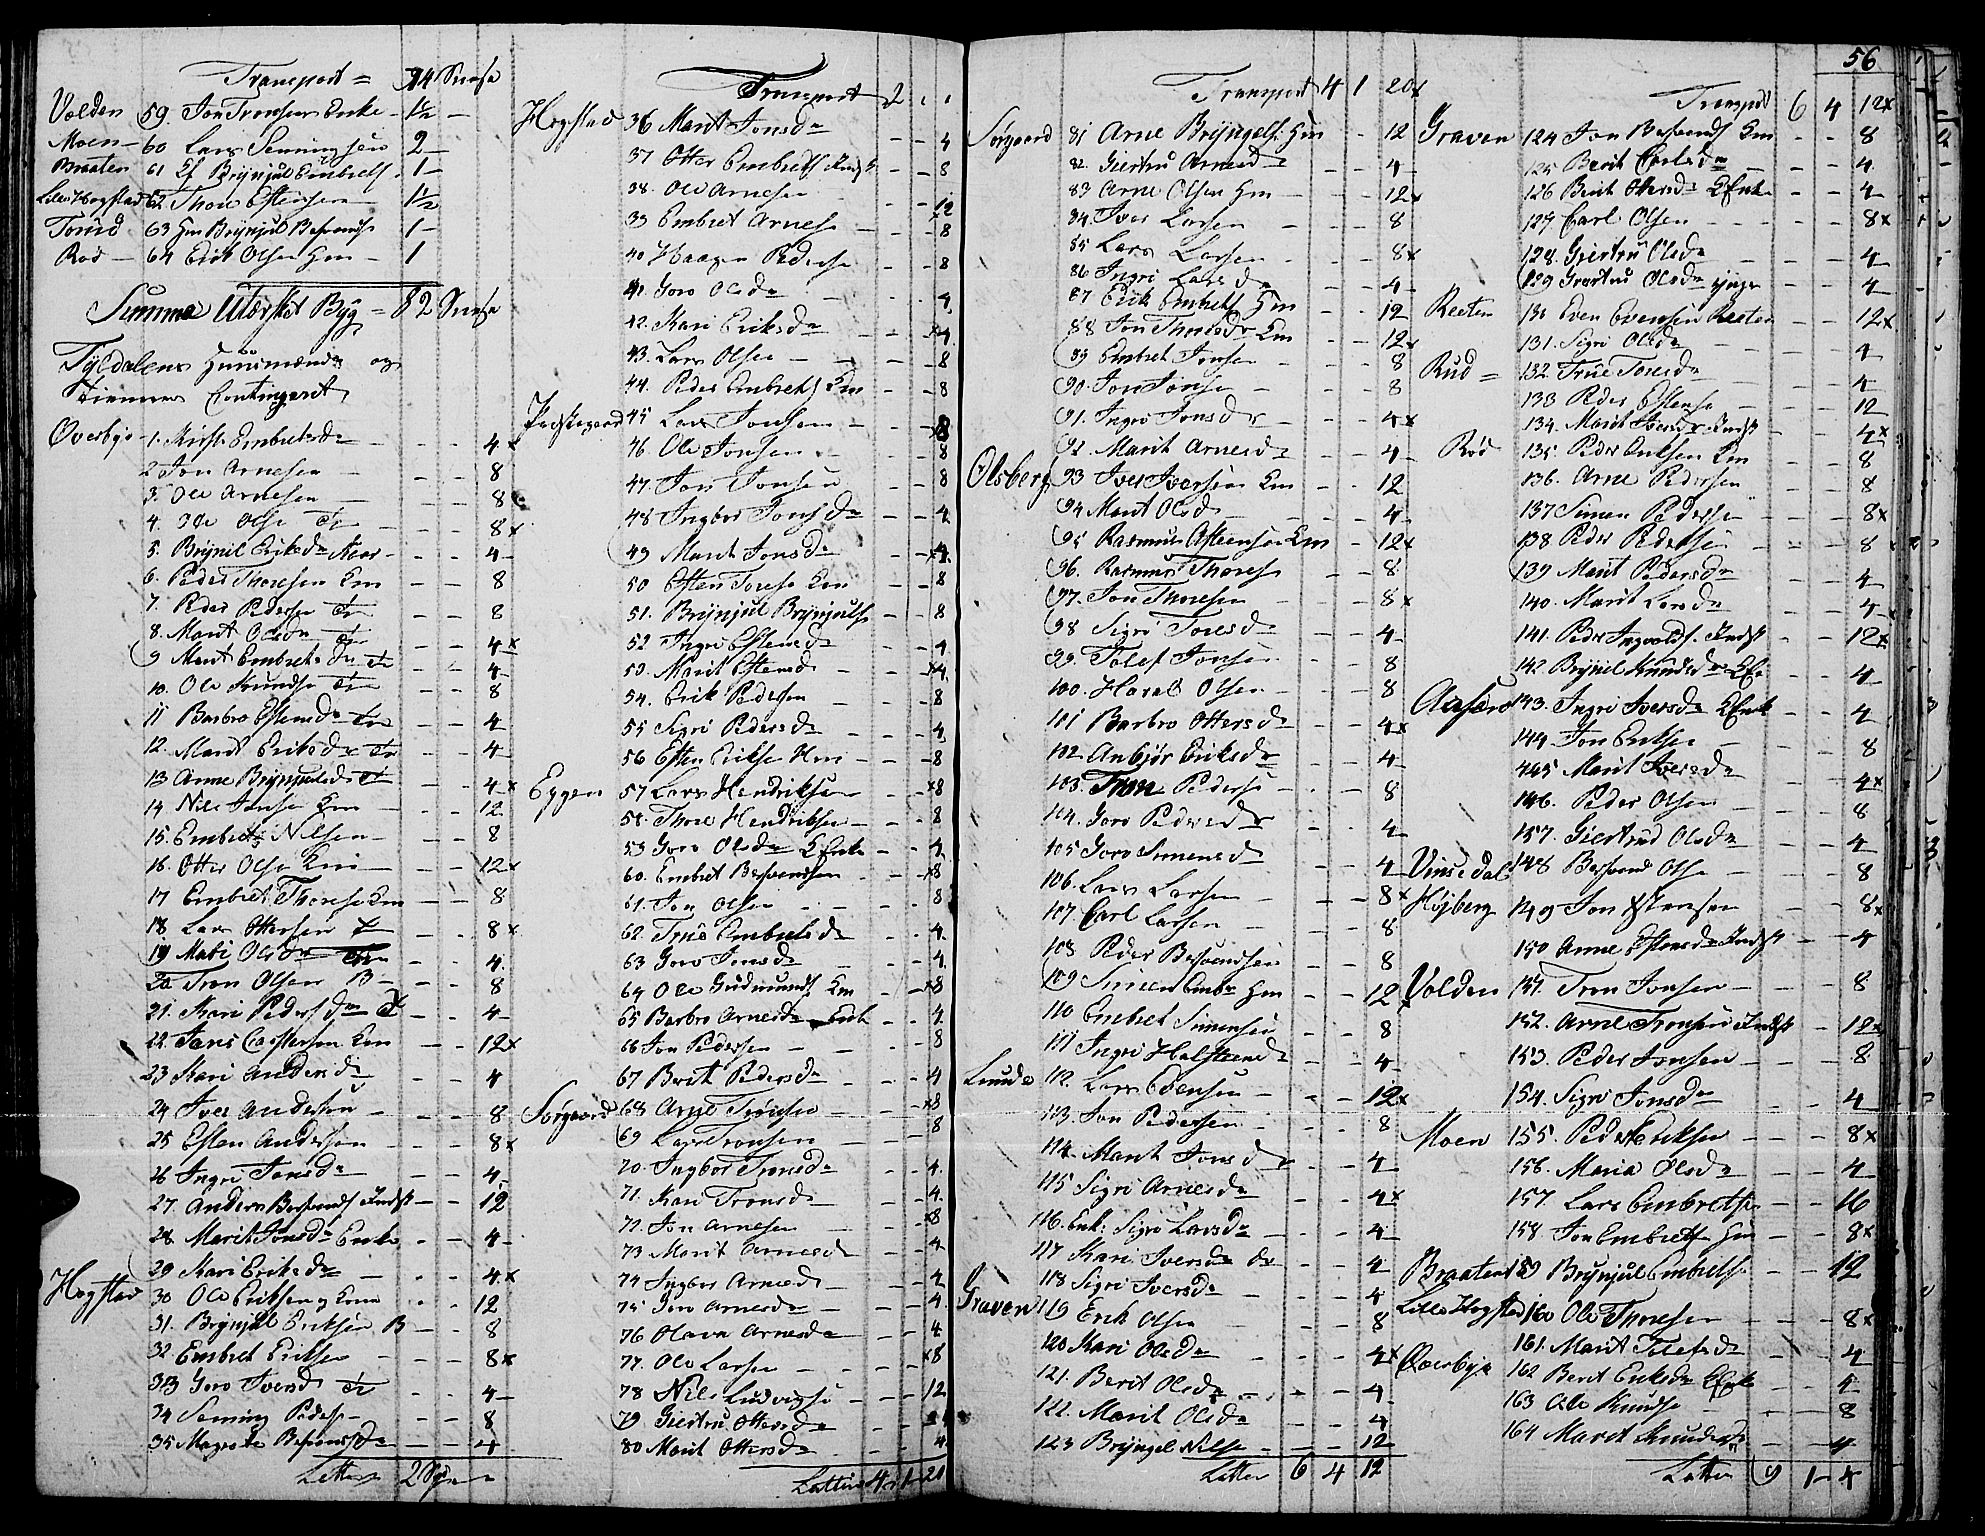 Transport = 74 Sneese
Volden 59. Jon Tronsens Enke - 1½ -
Moen - 60 Lars Semmingsen 2 -
Braaten 61 Ef Brynjul Embrets. 1 -
Lille Hogstad 62 Thore Estensen - 1½
63 Hm Brynjul Besvends 1 -
Rød - 64 Erik Olsen Hm - 1
Summa Uthærsket Byg = 82 Sneese
Tyldalens Huusmænds og
Tienneres Contingent
Overbye - 1. Kirsti Embretsdr - - 4 x
2 Jon Arnesen - - 8
3. Ole Arnesen - - 8
4. Ole Olse Tr - - 8 x
5. Brynil Eriksdr - 4 -
6. Peder Thoresen Hm - - 8
7. Peder Pedersen Tr - - 8
8. Marit Olsdr Tr - - 4 x
9 Marit Embretsdr Tr - - 4 -
10. Ole Knudse Tr - - 8
11 Barbro Estensdr Tr - - 4
12. Marit Eriksdr Tr - - 4 -
13 Anne Brynjulsdr Tr - - 4 x
14 Nils Jonsen Hm - - 12
15. Embret Nilsen - - 8
16. Otter Olse Hm - - 12 x
17 Embret Thorese Hm - - 8
18 Lars Ottersen Tr - - 8 x
19 Mari Olsdr Tr - - 4.
20 Tron Olsen B - - - 8
21. Kari Pedersdr Tr - - 4 -
22. Jans Hm - - 12 x
23 Kari Andersdr - - 4
24 Iver Andersen - - - 8
25 Esten Andersen - - - 8 x
26 Ingri Jonsdr - - - 4.
27. Anders Besvends Indst - - 12
28 Marit Jonsdr Enke - - 4 -
29 Kari Eriksdr - - - 4. x
Hogstad 30 Ole Eriksen og Kone - - 12
31. Brynjul Eriksen B - - 8
32. Embret Eriksen - - - 8 x
33 Goro Iversd Tr - - 4 -
34 Seming Peders - - - 8
35 Magrete Besvendsdr - - 4
Latter 2 - -
Transport 2 . .
Hogstad 36 Marit Jonsdr - - 4
37 Otter Embrets Indst - - 8
38. Ole Arnesen - - 12
39 Embret Arnes - - 8
40 Haagen Pederse - - 8
41. Goro Olsdr - - 4
42. Kari Eriksdr - - x 4.
43. Lars Olsen - - 8
44. Peder Embrets Hm - - 8
Præstegaard 45 Lars Jonsen - - 8
46. Ole Jonsen - - 8
47. Jon Jonsen - - 8
48 Ingbor Jonsdr - - 4
49 Marit Jonsdr - - x 4
50 Esten Torese Hm - - 8
51. Brynjul Brynjuls - - 8
52 Ingri Estensd - - 4
53. Marit Estensd - - x 4
54. Erik Pedersen - - 8
55 Sigri Pedersdr - - 4.
56 Esten Erikse Hm - - 8
Eggen 57 Lars Hendriksen - - x 8
58. Thore Hendriksen - - 8
59 Goro Olsdr Enke - - 4
60. Embret Besvendsen - - x 8
61. Jon Olsen - - 8
62. Embretsdr - - 4.
63 Goro Jonsdr - - 4.
64 Ole Gudmunds Hm - - x 8
65 Barbro Arnesdr Enk - - 4
66 Jon Pedersen - - 8
67 Berit Pedersdr - - 4
Sørgaard 68 Arne Tronsen - - x 8
69 Lars Tronsen - - 8
70 Ingbor Tronsdr - - 4.
71. Kari Tronsdr - - 4.
72. Jon Arnesen - - x 8
73 Marit Arnesdr - - 4
74 Ingbor Arnesd - - 4
75. Goro Arnesdr - - 4.
76 Olava Arnesdr - - 4
77. Ole Larsen - - x 8
78 Nils Ludvigse - - 12
79 Giertru Ottersdr - - 4
80 Marit Ottersdr - - 4
Latter 4 - 1 - 20
56
Transport 4 1 20 x
Sørgaard 81 Arne Brynjels Hm - - 12
82 Giertru Arnesdr - - 4 -
83 Arne Olsen Hm - - 12 x
84. Iver Larsen - - 8
85 Lars Larsen - - 8 x
86 Ingri Larsdr - - 4 -
87 Erik Embrets Hm - - 12
88 Jon Hm - - 12 x
89 Embret Jonsen - - 8
90. Jon Jonse - - 8
91. Ingri Jonsdr - - 4 x
92. Marit Arnesdr - - 4 -
Olsberg 93 Iver Iversen Hm - - 12
94 Marit Olsd - - 4 -
95 Rasmus Hm - - 12 x
96. Rasmus Thores - - 8
97. Jon Thoresen - - 8 x
98 Sigri Toresdr - - 4 -
99. Tolef Jonsen - - 8
100. Haral Olsen - - 8
101 Barbro Ottersdr - - 4 x
102. Anbjør Eriksdr - - 4 -
103. Tron Pederse - - 8
104. Goro Pedersdr - - 4
105 Goro Simensd - - 4
106. Lars Larsen - - 8 x
107. Carl Larsen - - 8
108 Peder Besvendsen - - 8
109 Simen Embr Hm - - 12 x
110 Embret Simensen - - 8
111 Ingri Halstensdr - - 4
112. Lars Evensen - - 12 x
113. Jon Pedersen - - 8
114. Marit Jonsdr - - 4
115 Sigri Arnesdr - - 4 x
116. Enk: Sigri Larsdr - - 4
117 Kari Iversdr - - 4
118 Sigri Iversdr - - 4
Graven 119 Erik Olsen - - 8
120 Kari Olsdr - - 4 x
121. Berit Olsdr - - 4
122. Marit Olsdr - - 4
123 Bryngel Nilse - - 12
Latter 6 4 12
Transport 6 4 12 x
Graven 124 Jon Besvends Hm - - 8
125 Berit - - 4
126 Berit Ottersdr Enk - - 4
127 Carl Olsen - - 8 x
128. Giertru Olsdr - - 4
129 Giertru Olsdr yngr - - 4
Reeten 130 Even Evensen Reeten - - 12 x
131. Sigri Olsdr - - 4
Rud = 132. Jonsdr - - 4
133 Peder Estense - - 12
134. Marit Indst - - 4 x
Rød 135 Peder Eriksen Hm - - 8
136. Arne Pedersen - - 8
137 Simen Pederse - - 8 x
138 Peder Pedersen - - 8
139 Marit Pedersdr - - 4
140. Marit Larsdr - - 4
141. Peder Ingvalds. Indst - - 12 x
142 Brynil Knudsdr - - 4
143. Ingri Iversdr Enk - - 4
144. Jon Eriksen - - 8
145 Marit Iversdr - - 4 x
146. Peder Olsen - - 8
147. Giertrud Olsdr - - 4
148 Besvend Olse - - 8
Høiberg 149 Jon Estensen - - 8 x
150 Anne Estensdr Indst - - 4
Volden 151. Tron Jonsen - - 8
152. Arne Tronsen Indst - - 12 x
153. Peder Jonsen - - 8
154. Sigri Jonsdr - - 4
Moen 155. Peder Eriksen - - 8 x
156. Maria Olsdr - - 4
157. Lars Embretse - - 16
158. Jon Embrets Hm - - 8 x
Braaten 159 Brynjul Embrets - - 12
Lille Hogstad 160 Ole Thoresen - - 8 x
161. Marit Tolefsdr - - 4
Overbye 162 Berit Eriksdr Enk - - 4
163 Ole Knudse - - 8
164 Maret Knudsdr - - 4
Latter 9 1 - 4